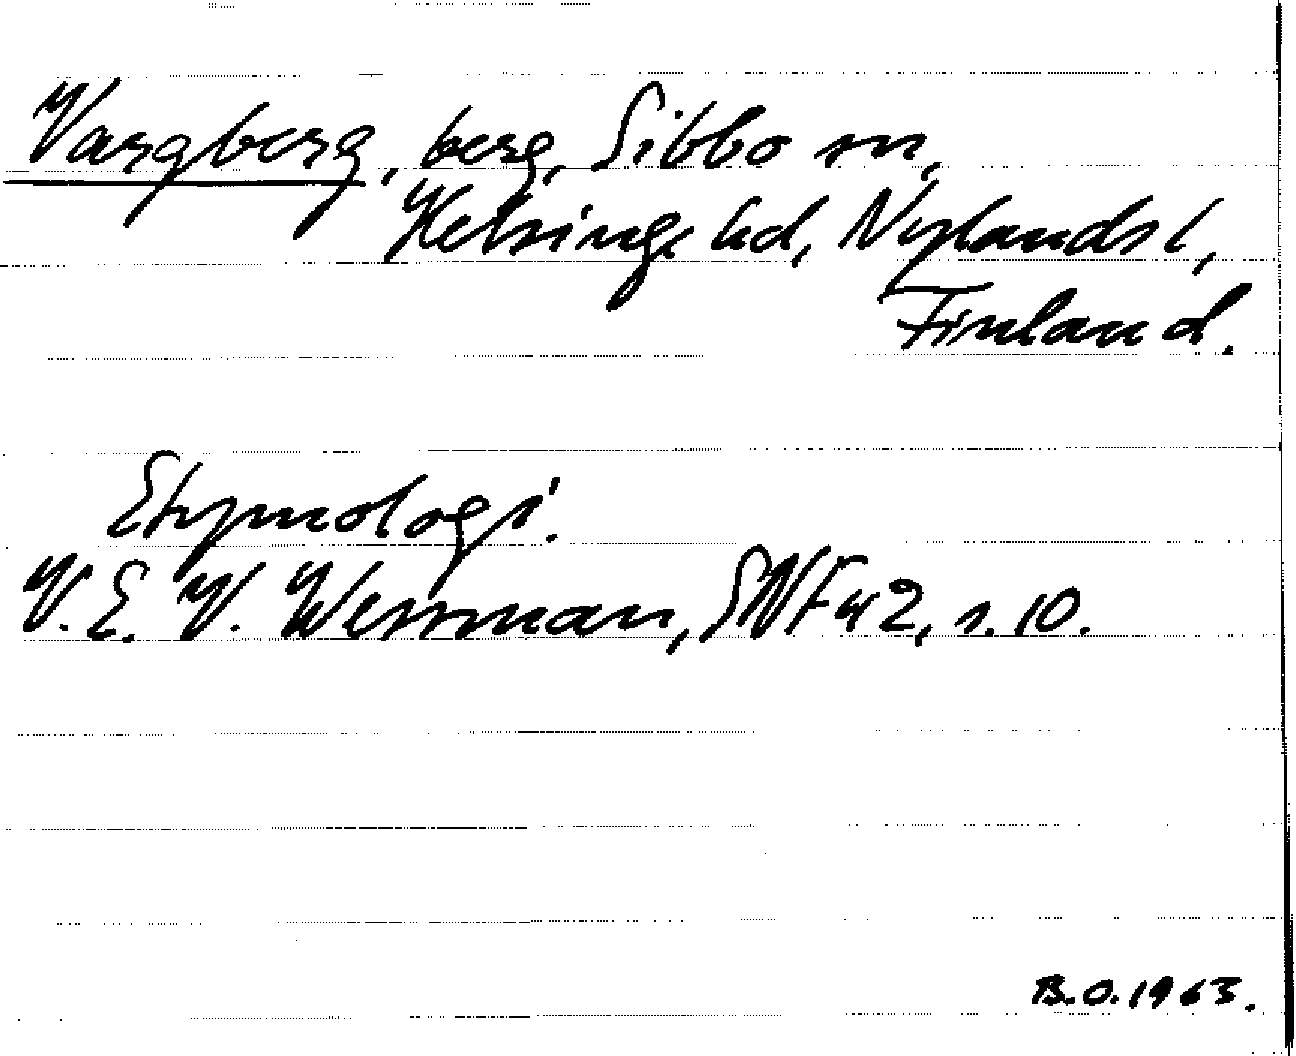 Vargberg, berg, Sibbo sn,
Helsinge hd, Nylands l,
Finland.
Etymologi.
V. E. V. Wessman, SNF 42, s. 10.
B.O. 1963.